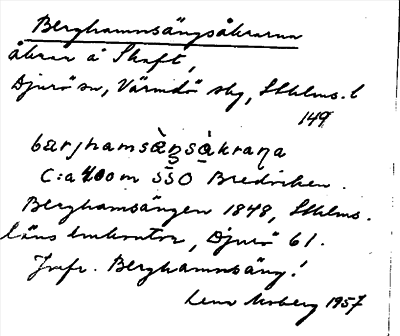 Berghamnsängsåkrarna
åkrar å Skaft,
Djurö sn, Värmdö skg, Sthlms. l
149
bærjhamsàŋså̀kraɳa
C:a 400 m SSO Bredviken.
Berghamsängen 1848, Sthlms.
läns lmkontor, Djurö 61.
Jmfr. Berghamnsäng!
Lena Moberg 1957